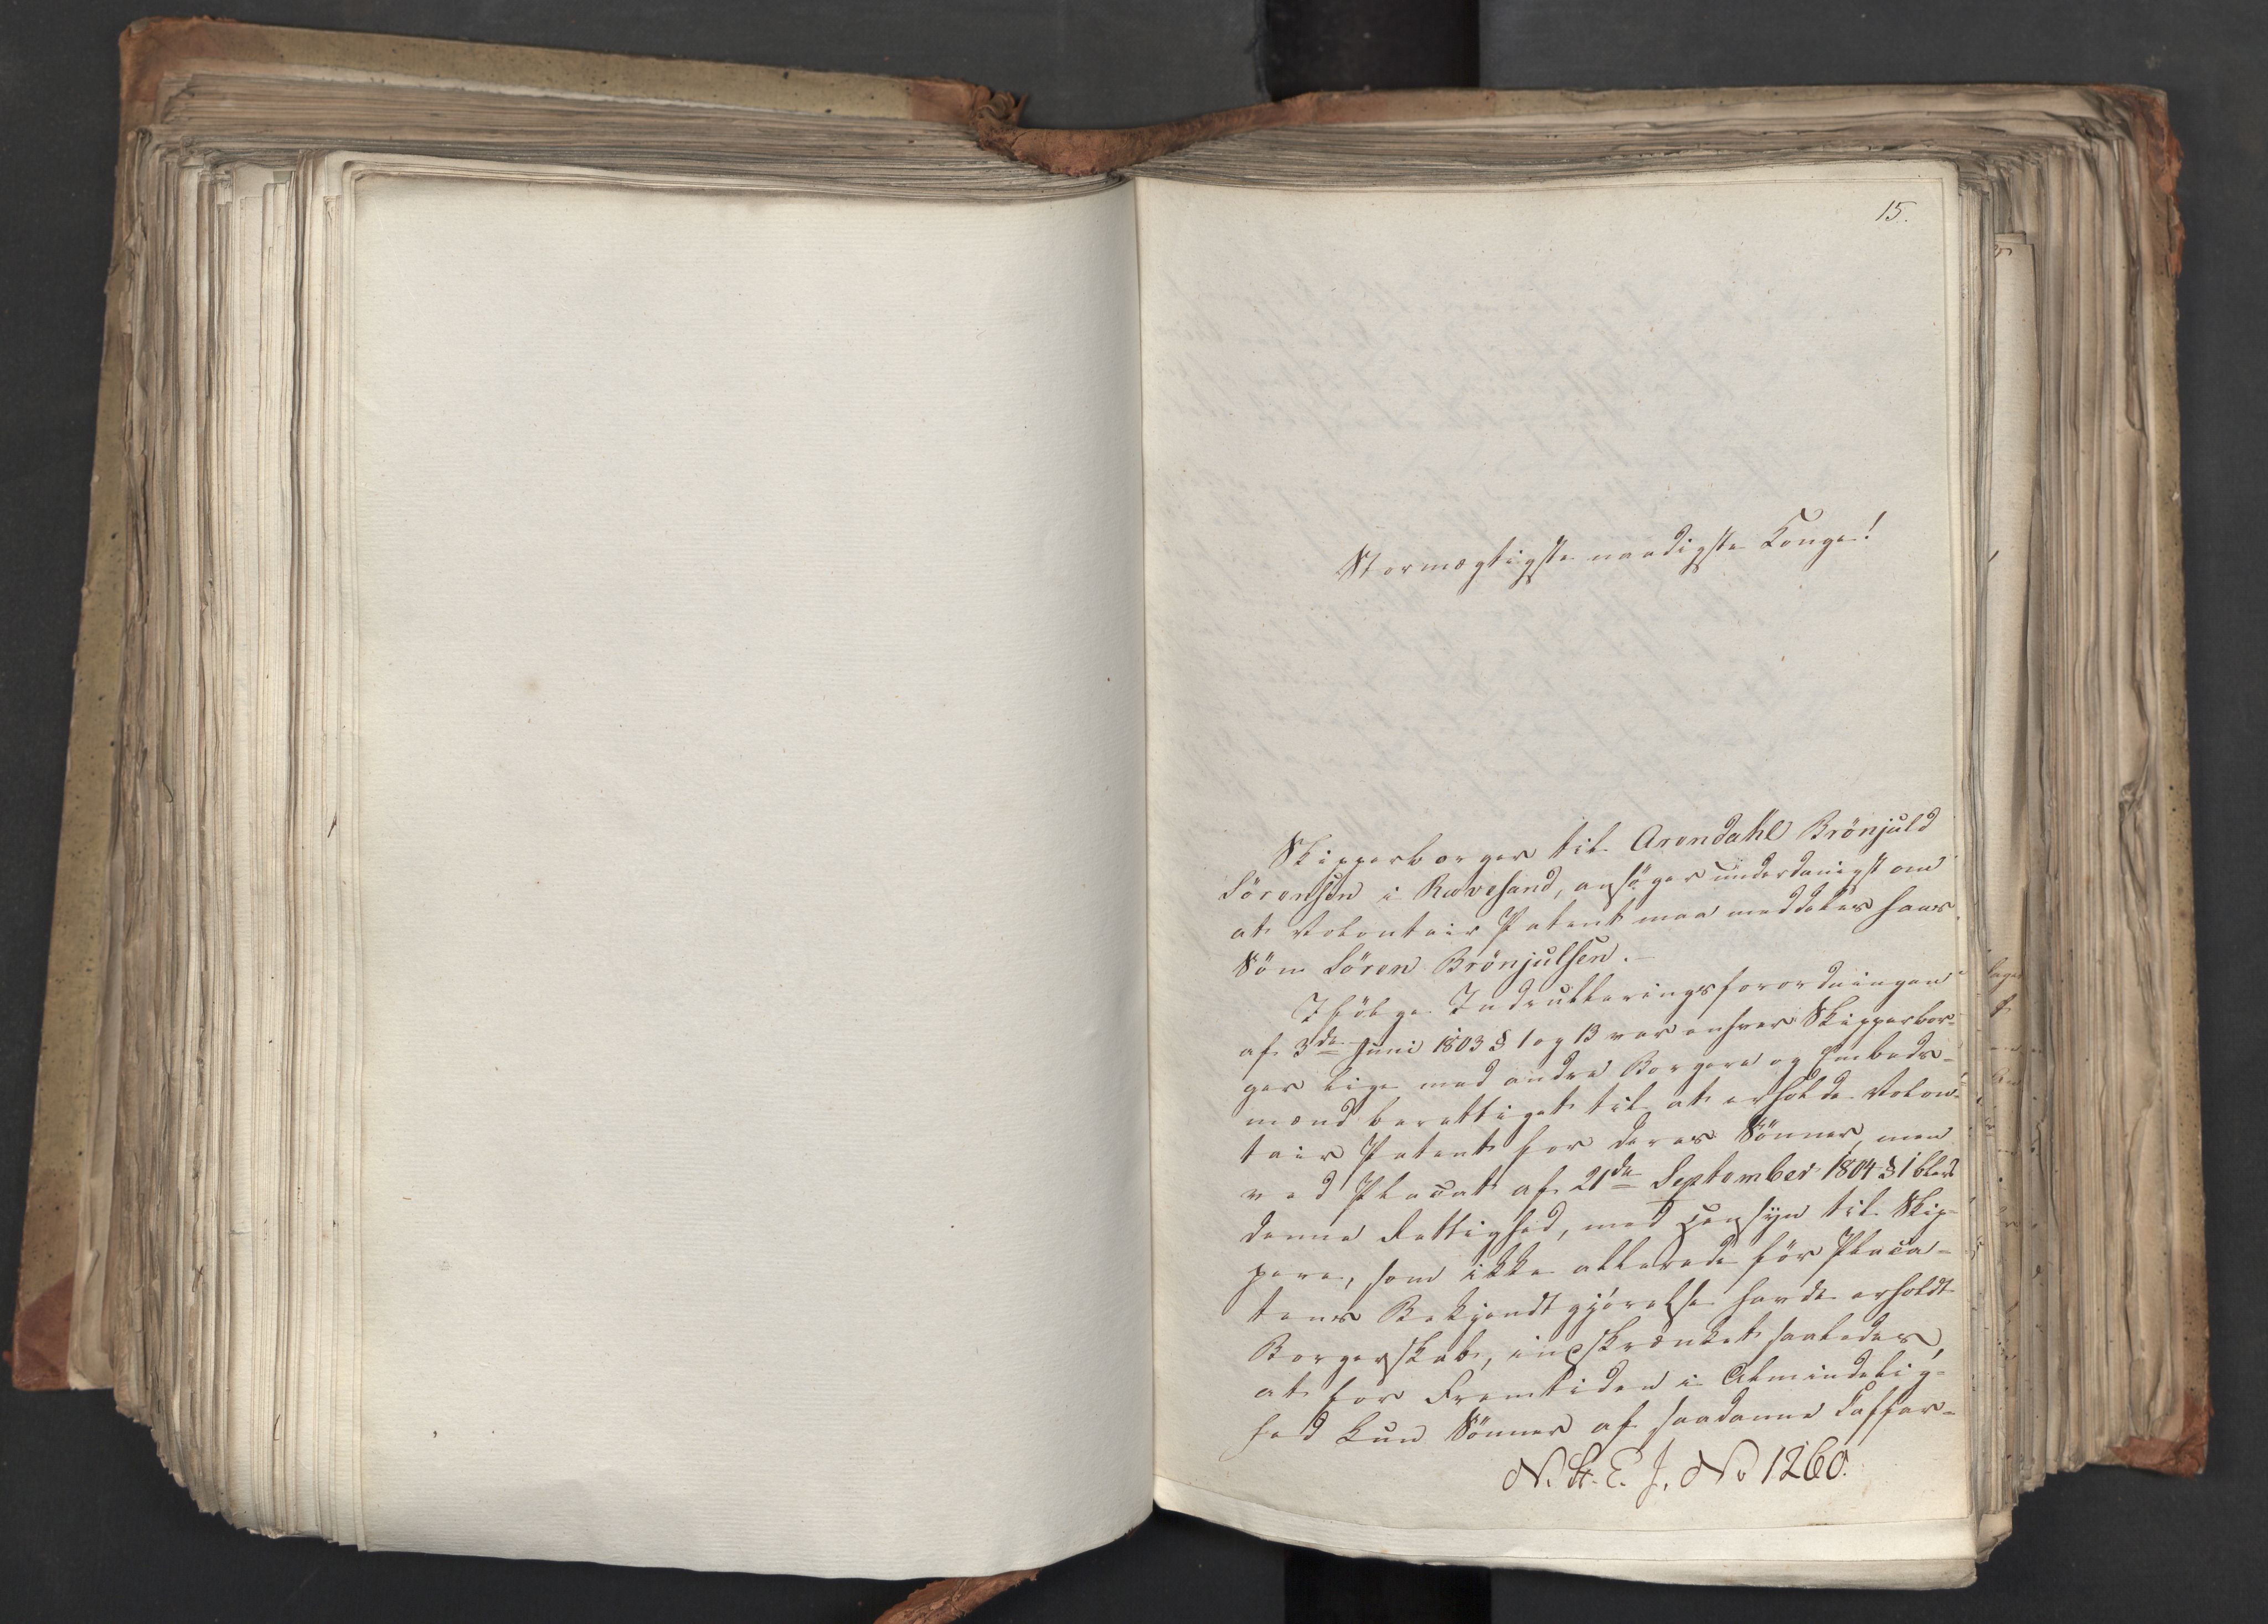 15.
Stormægtigste naadigste Konge!
Skipperborger til Arendahl Brönjuld
Sörensen i Rævesand, ansöger underdanigst om
at Volontair Patent maa meddeles hans
Sön Sören Brönjulsen.
Ifölge Indrulleringsforordningen
af 3de Juni 1803 § 1 og 13 var enhver Skipperbor-
ger lige med andre Borgere og Embeds-
mænd berettiget til at erholde Volon-
tair Patent for deres Sönner, men
ved Placat af 21de September 1804 § 1 blev
denne Rettighed, med Hensyn til Skip-
pere, som ikke allerede för Placa-
tens Bekjendtgjörelse havde erholdt
Borgerskab, indskrænket saaledes,
at for Fremtiden i Almindelig-
hed kun Sönner af saadanne Coffar-
N. H. E. J. No 1260.